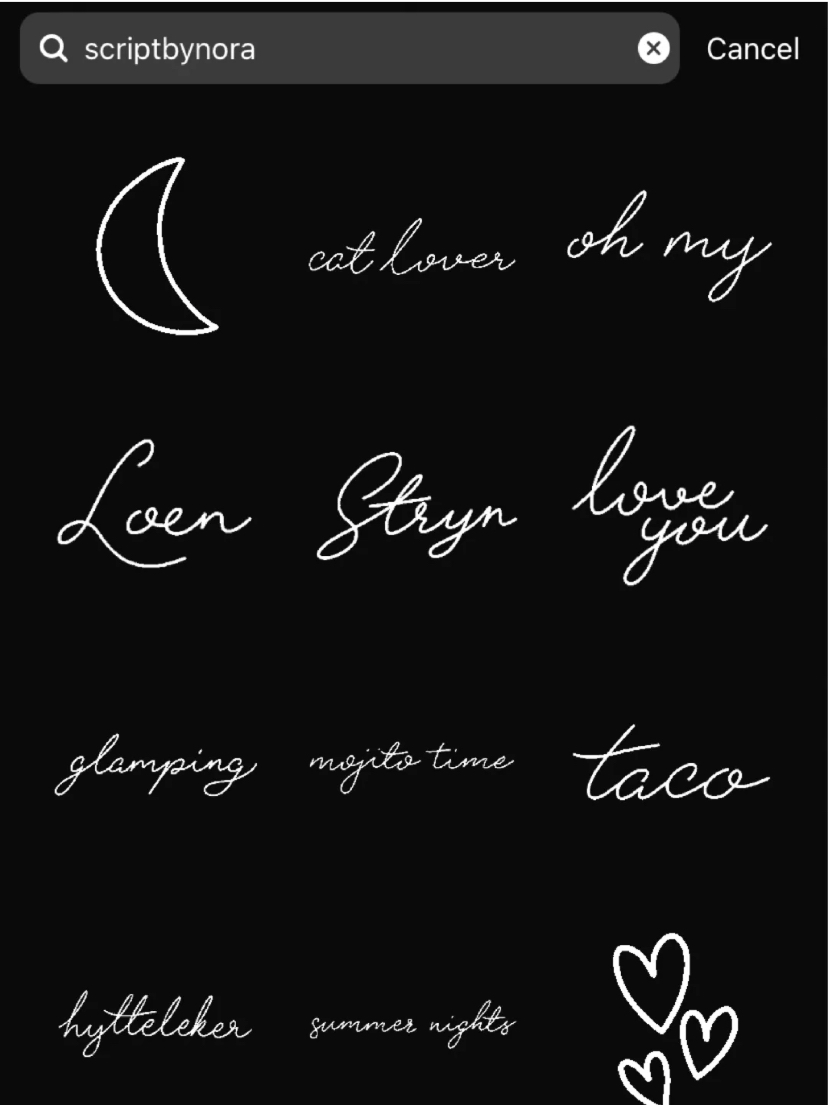 scriptbynora Cancel
cat lover
oh my
Loen
Stryn
love
you
glamping
mojito time
taco
hytteleker
summer nights